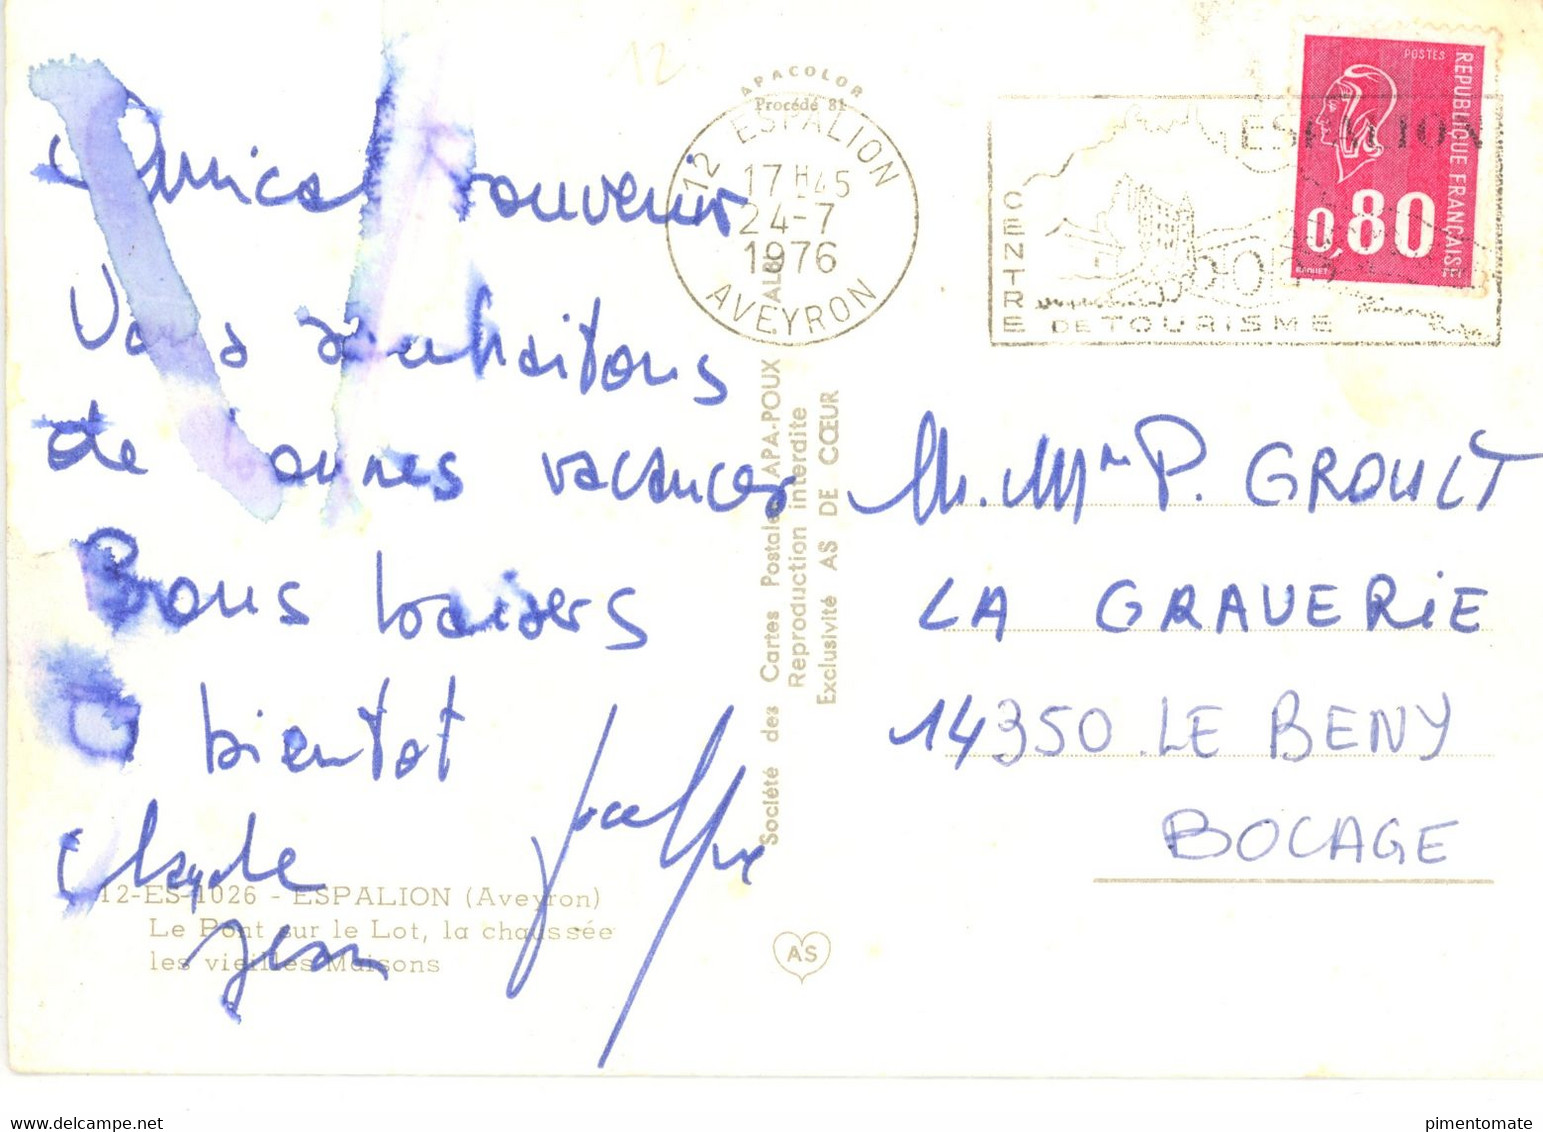 Amical souvenir
Vous souhaitons
de bonnes vacances
Bons baisers
A bientot
Jean
12-ES-1026 - ESPALION (Aveyron)
Le Pont sur le Lot, la chaussée
les vieilles Maisons
12
APACOLOR
Procédé 81
12 ESPALION
17 H45
24-7
1976
AVEYRON
Société des Cartes Postales APA-POUX ALBI
Reproduction interdite
Exclusivité AS DE CŒUR
AS
ESPALION
CENTRE
DE TOURISME
POSTES
REPUBLIQUE FRANÇAISE
0,80
BEQUET
M. Mme P. GROULT
LA GRAVERIE
14350 LE BENY
BOCAGE
delcampe.net
pimentomate